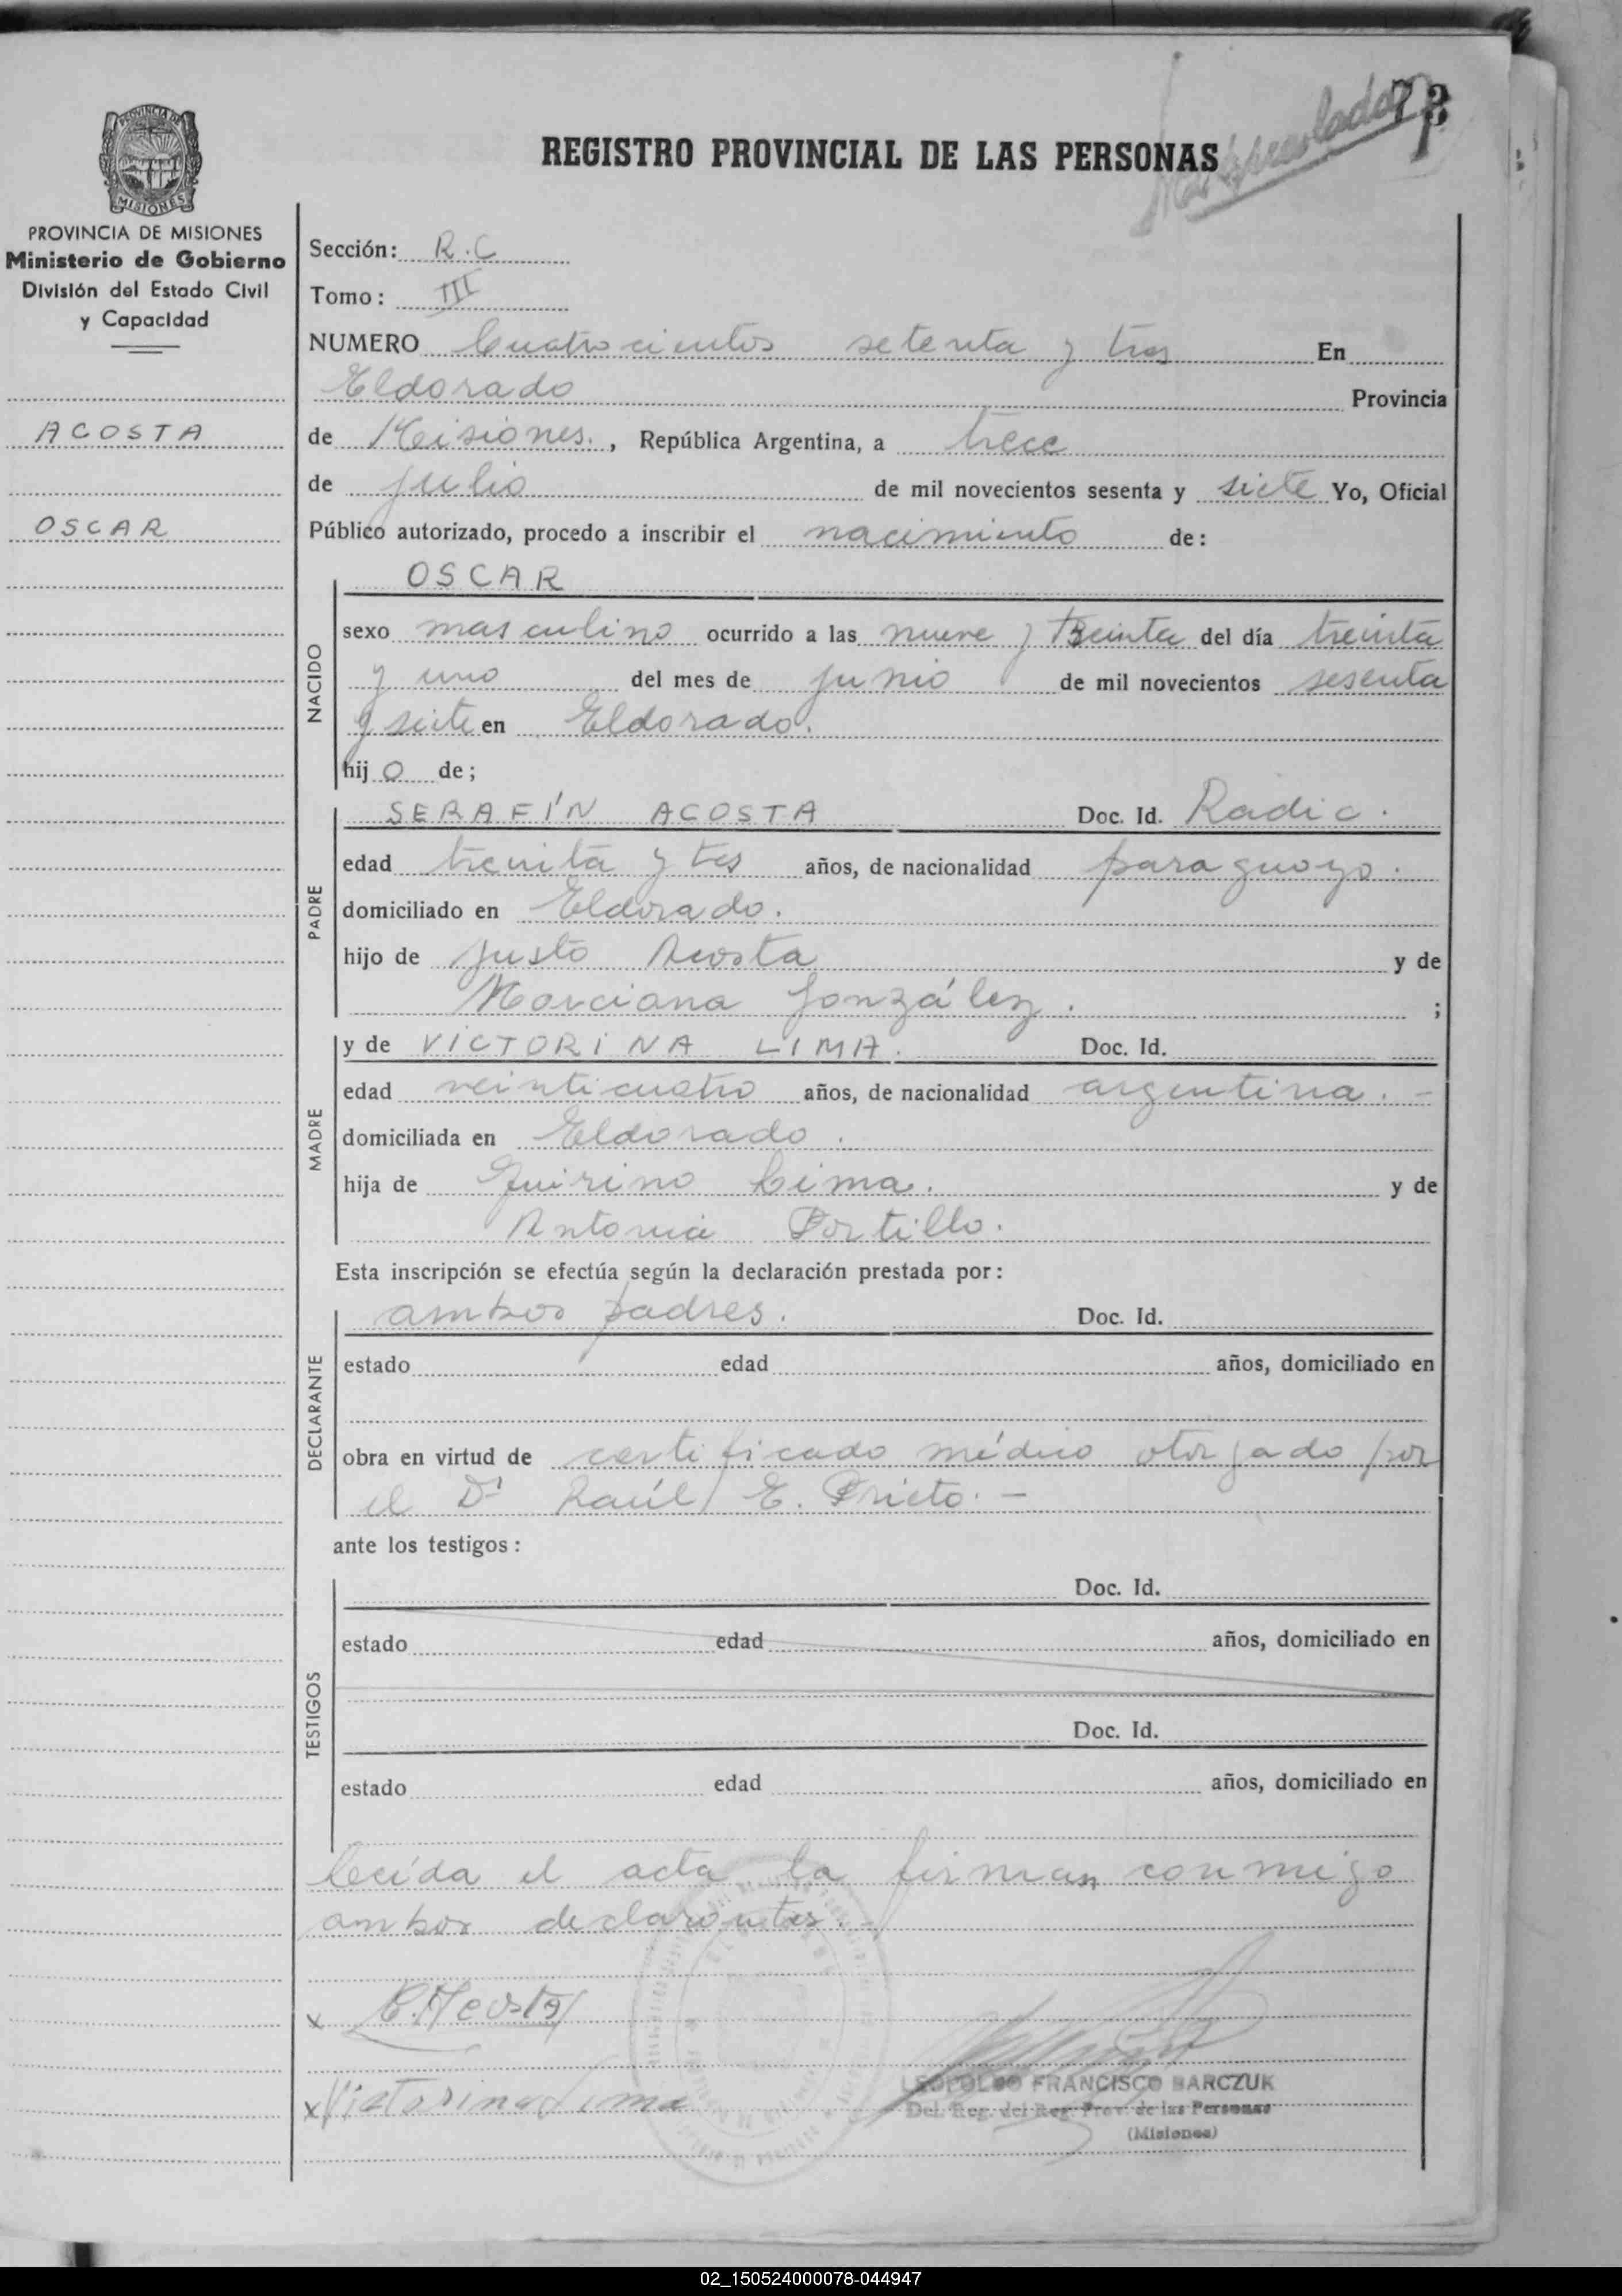 73
Matriculado
PROVINCIA DE
MISIONES
REGISTRO PROVINCIAL DE LAS PERSONAS
PROVINCIA DE MISIONES
Ministerio de Gobierno
División del Estado Civil
y Capacidad
ACOSTA
OSCAR
Sección: R.C
Tomo: III
NUMERO Cuatrocientos setenta y tres En
Eldorado Provincia
de Misiones., República Argentina, a trece
de julio de mil novecientos sesenta y siete Yo, Oficial
Público autorizado, procedo a inscribir el nacimiento de:
NACIDO
OSCAR
sexo masculino ocurrido a las nueve y treinta del día treinta
y uno del mes de junio de mil novecientos sesenta
y siete en Eldorado.
hijo de;
PADRE
SERAFÍN ACOSTA Doc. Id. Radic.
edad treinta y tres años, de nacionalidad paraguayo.
domiciliado en Eldorado.
hijo de Justo Acosta y de
Marciana González. ;
MADRE
y de VICTORINA LIMA. Doc. Id.
edad veinticuatro años, de nacionalidad argentina. -
domiciliada en Eldorado.
hija de Quirino Lima. y de
Antonia Portillo.
Esta inscripción se efectúa según la declaración prestada por:
DECLARANTE
ambos padres. Doc. Id.
estado edad años, domiciliado en
obra en virtud de certificado médico otorgado por
el Dr Raúl E. Prieto. -
ante los testigos:
TESTIGOS
Doc. Id.
estado edad años, domiciliado en
Doc. Id.
estado edad años, domiciliado en
Leída el acta la firman conmigo
ambos declarantes. -
x Acosta
x Victorina Lima
LEOPOLDO FRANCISCO BARCZUK
Del. Reg. del Reg. Prov. de las Personas
(Misiones)
02_150524000078-044947